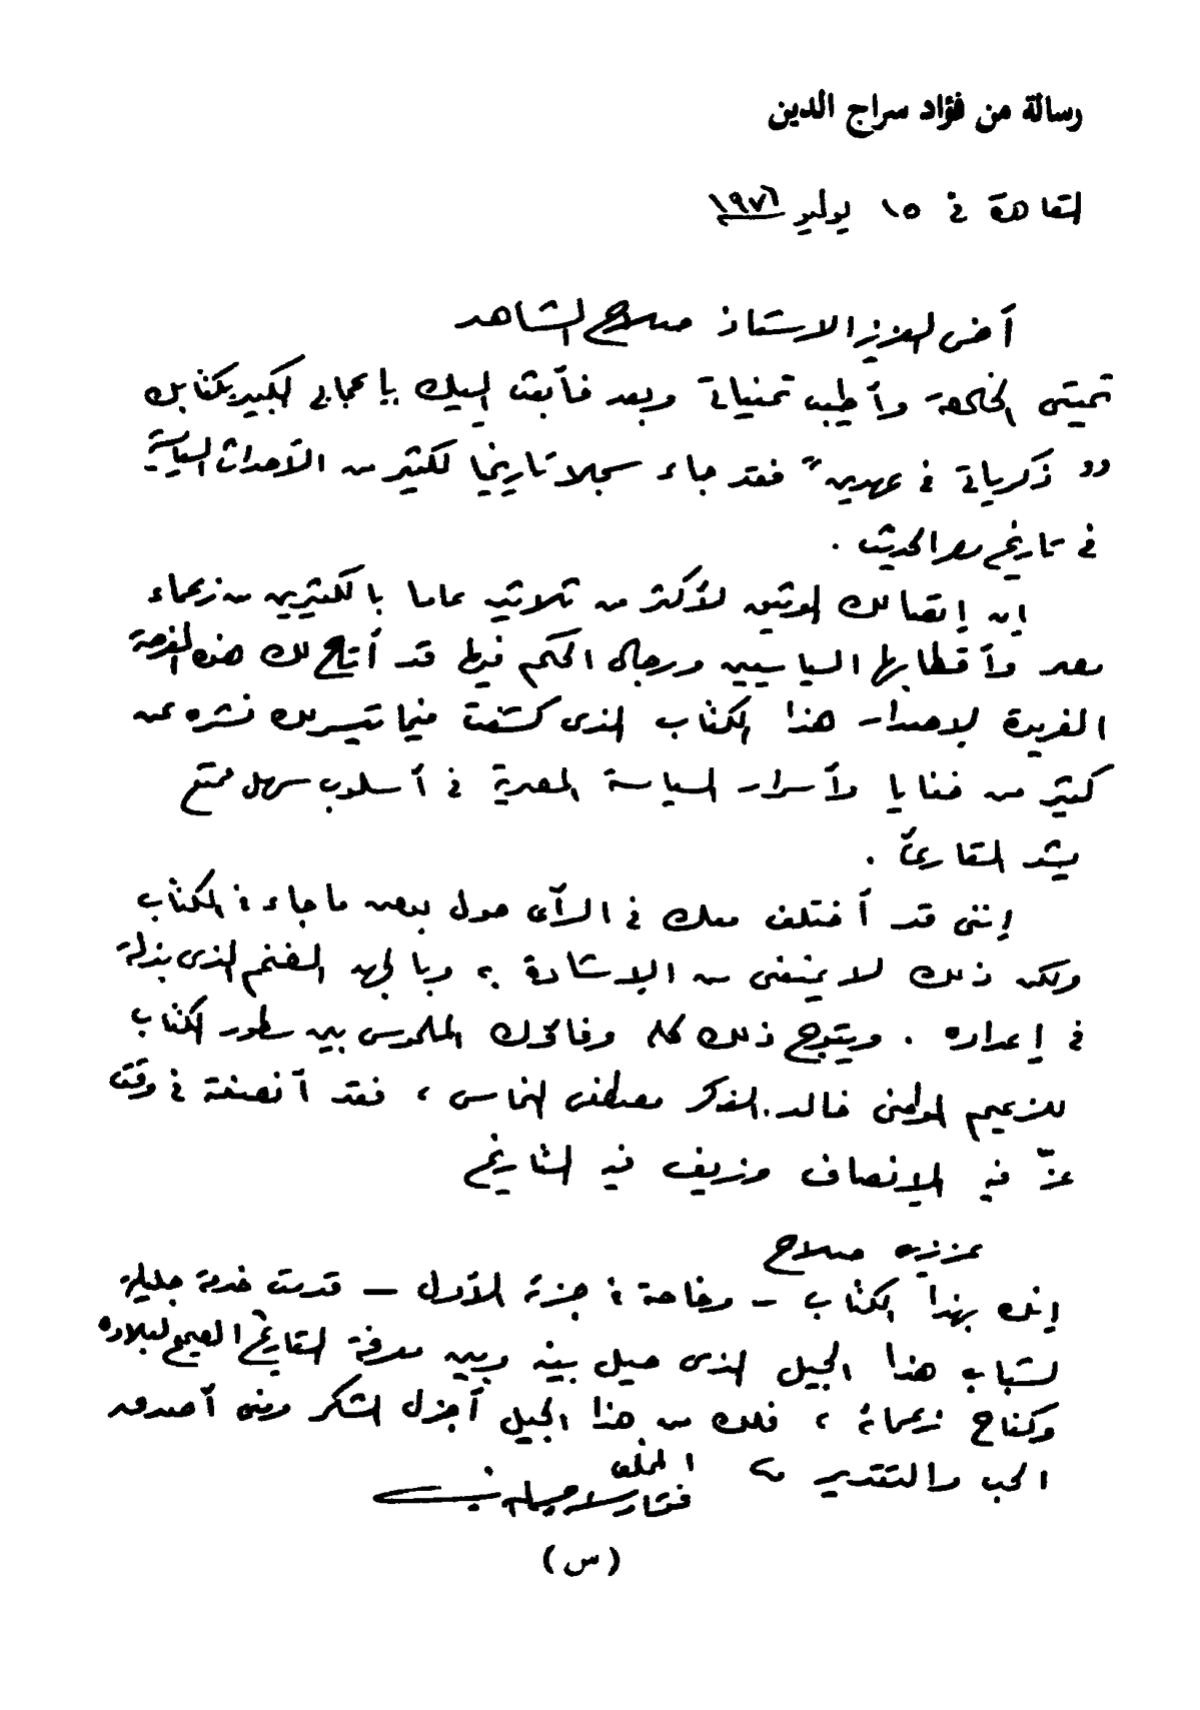 رسالة من فؤاد سراج الدين
القاهرة فى ١٥ يوليو ١٩٧٦
أخى العزيز الاستاذ صلاح الشاهد
تحيتى الخالصة وأطيب تمنياتى وبعد فأبعث إليك بإعجابى الكبير بكتابك
" ذكرياتى فى عهدين " فقد جاء سجلا تاريخيا لكثير من الأحداث السياسية
فى تاريخ مصر الحديث .
إن إتصالك الوثيق لأكثر من ثلاثين عاما بالكثيرين من زعماء
مصر وأقطابها السياسيين ورجال الحكم فيها قد أتاح لك هذه الفرصة
الفريدة لإصدار هذا الكتاب الذى كشفت فيما تيسر لك نشره عن
كثير من خفايا وأسرار السياسة المصرية فى أسلوب سهل ممتع
يشد القارئ .
إننى قد أختلف معك فى الرأى حول بعض ما جاء فى الكتاب
ولكن ذلك لا يمنعنى من الإشادة به وبالجهد الضخم الذى بذلته
فى إعداده . ويتوج ذلك كله وفاؤك الملموس بين سطور الكتاب
للزعيم الوطنى خالد الذكر مصطفى النحاس ، فقد أنصفته فى وقت
عزّ فيه الإنصاف وزيف فيه التاريخ
عزيزى صلاح
إنك بهذا الكتاب – وخاصة فى جزئه الأول – قدمت خدمة جليلة
لشباب هذا الجيل الذى حيل بينه وبين معرفة التاريخ الصحيح لبلاده
وكفاح زعمائه ، فلك من هذا الجيل أجزل الشكر ومنى أصدق
الحب والتقدير
المخلص
فؤاد سراج الدين
(س)